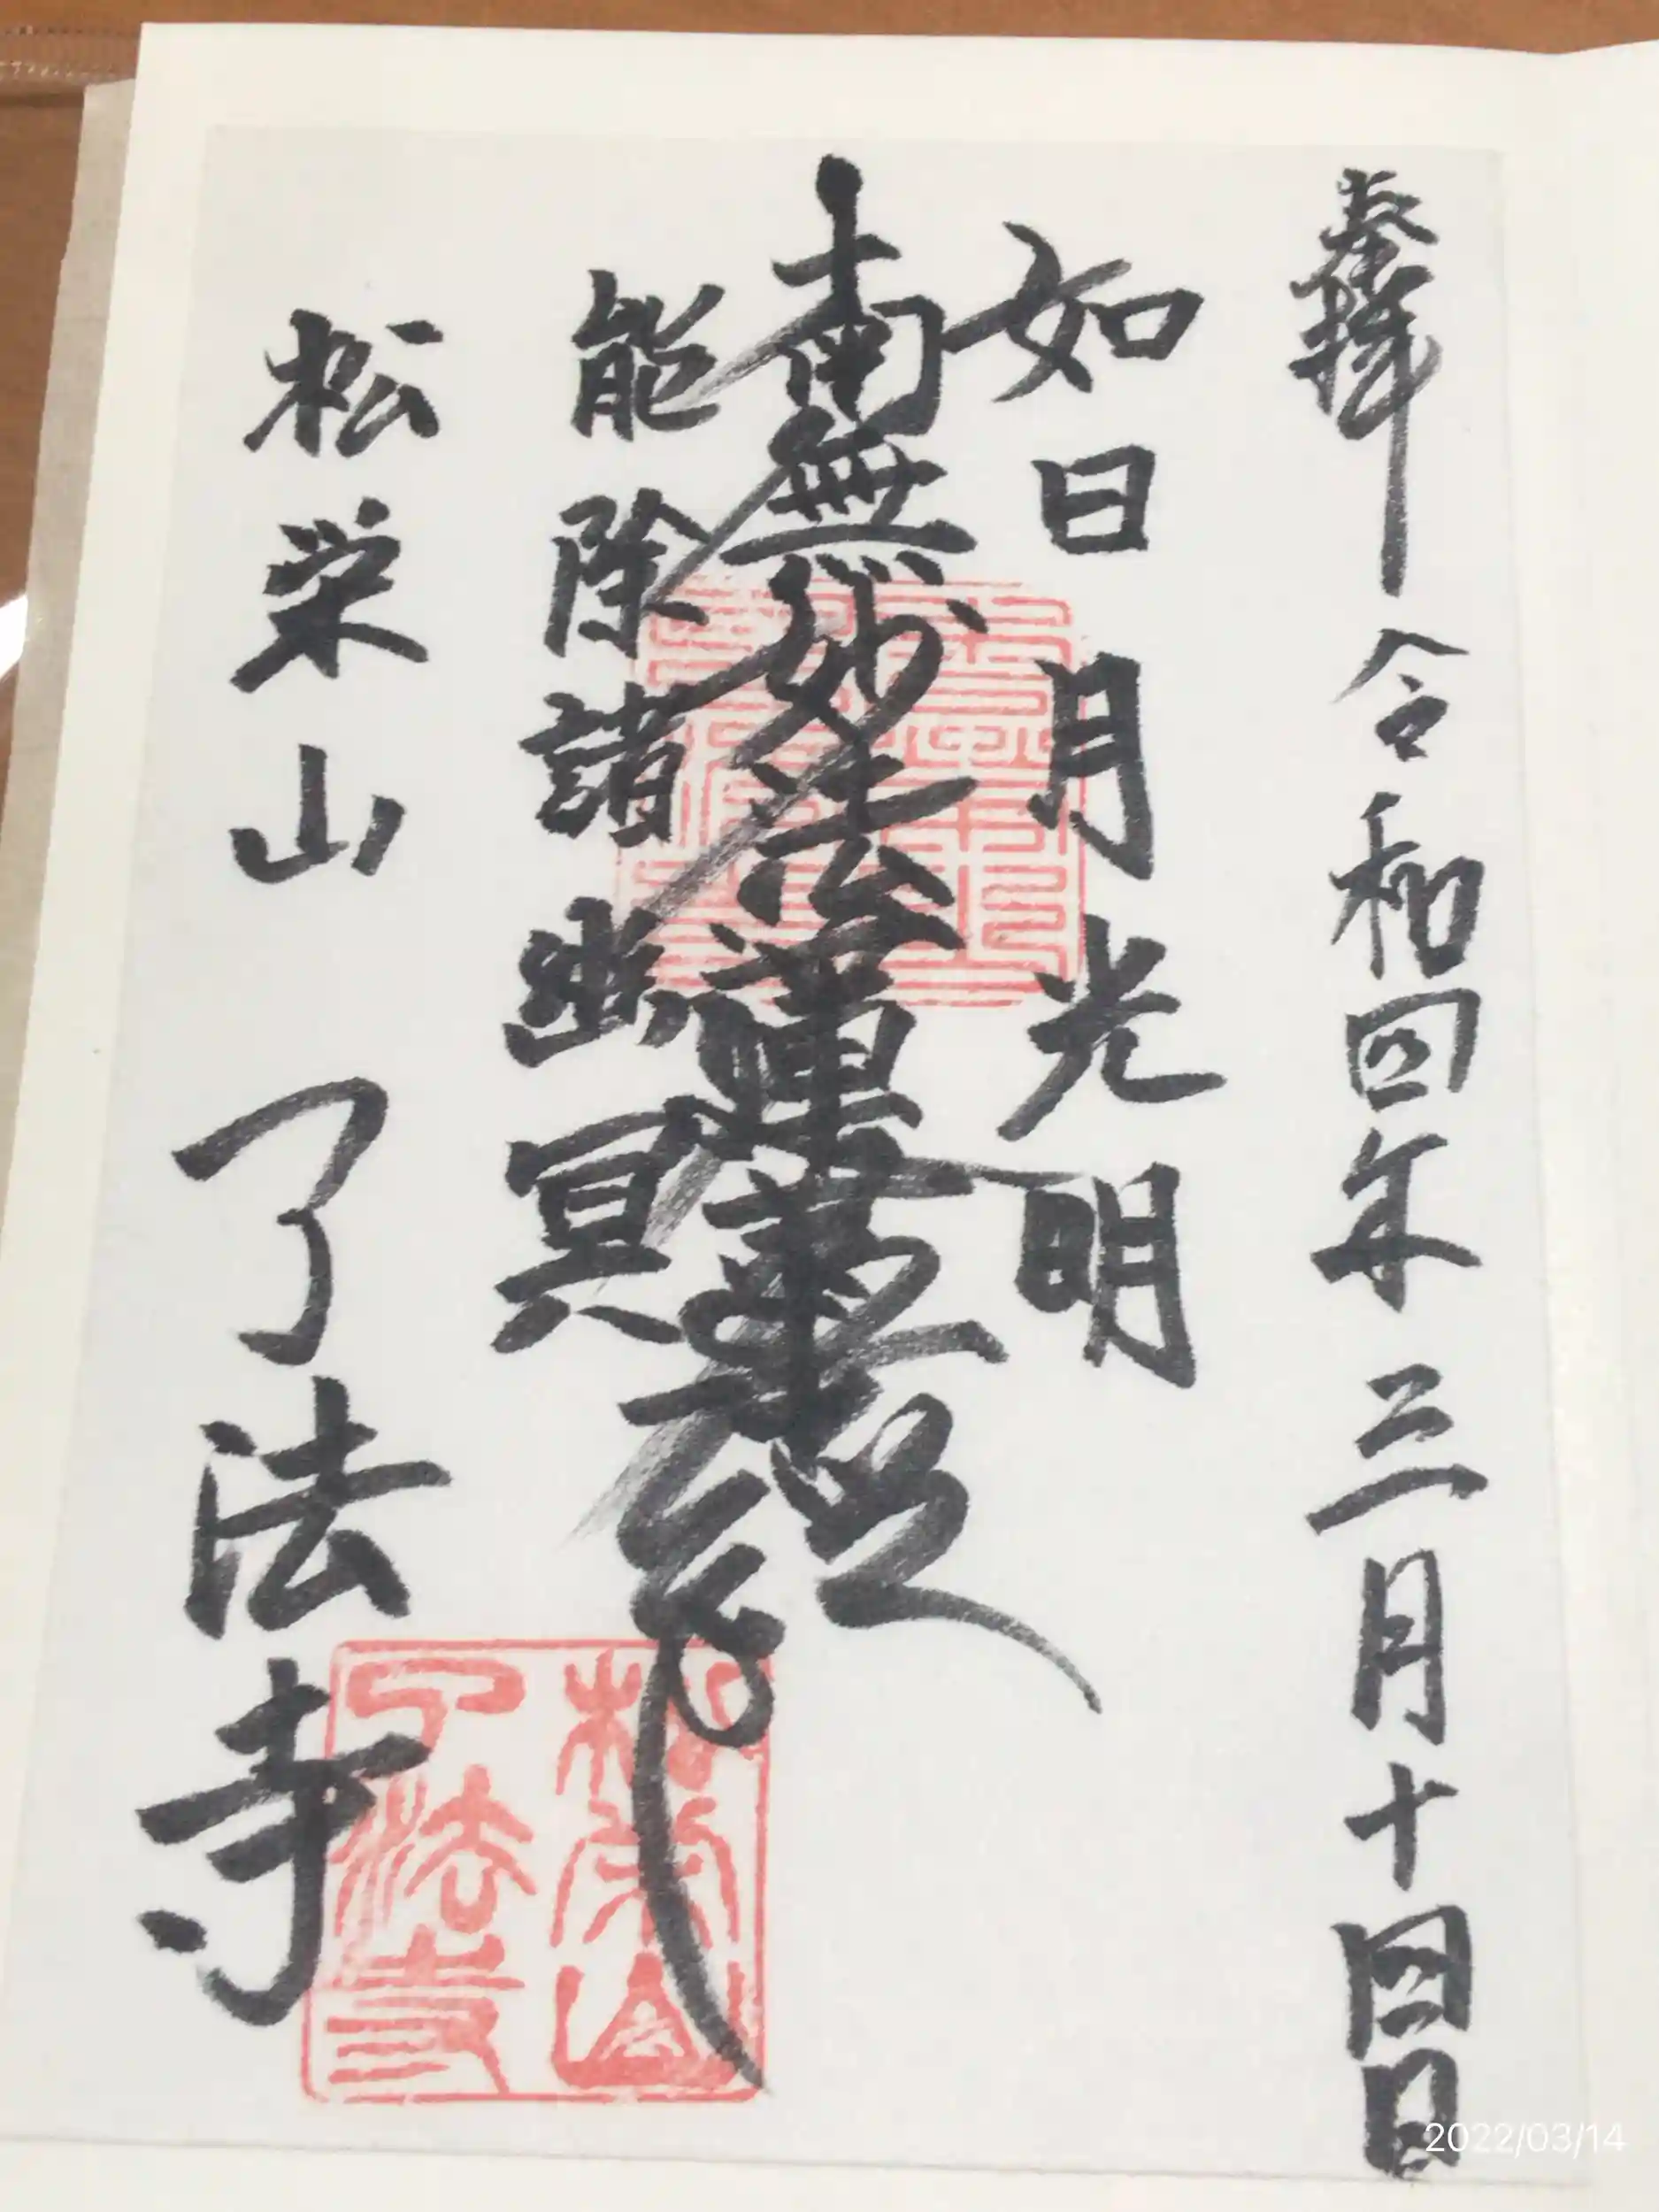 奉拝 令和四年三月十四日
如日月光明
南無妙法蓮華経
能除諸幽冥
松栄山 了法寺
松栄山
了法寺
2022/03/14